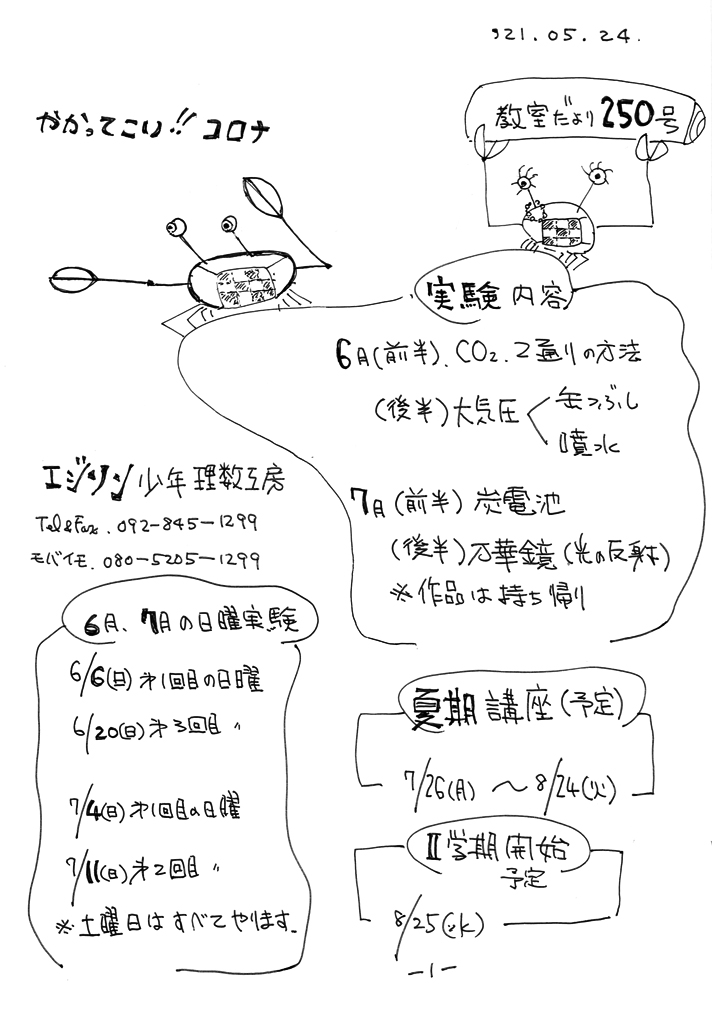 '21.05.24.
教室だより250号
かかってこい!!コロナ
実験内容
6月(前半).CO2.2通りの方法
(後半)大気圧
缶つぶし
噴水
7月(前半)炭電池
(後半)万華鏡(光の反射)
※作品は持ち帰り
エジソン少年理数工房
Tel&Fax.092-845-1299
モバイモ.080-5205-1299
6月、7月の日曜実験
6/6(日)第1回目の日曜
6/20(日)第3回目 〃
7/4(日)第1回目の日曜
7/11(日)第2回目 〃
※土曜日はすべてやります.
夏期講座(予定)
7/26(月)〜8/24(火)
II学期開始
予定
8/25(水)
-1-